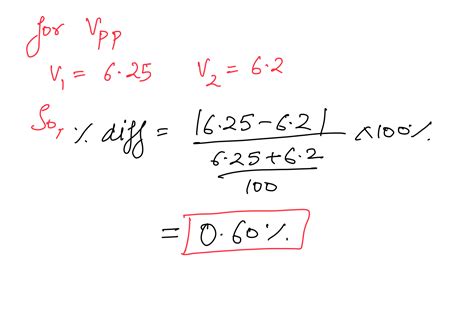 for Vpp
V₁ = 6.25 V₂ = 6.2
So, % diff = |6.25-6.2| / ((6.25+6.2)/100) × 100%
= 0.60%